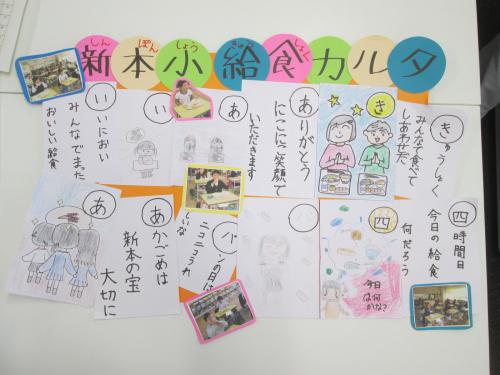 しん ぽん しょう きゅう しょく
新本小給食カルタ
きゅうしょく
みんなで食べて
しあわせだ
き
ありがとう
にこにこ笑顔で
いただきます
あ
い
いいにおい
みんなでまった
おいしい給食
四時間目
今日の給食
何だろう
四
今日
は何
かな?
パ
パンの日は
ニコニコうれ
しいな
あかごめは
新本の宝
大切に
あ